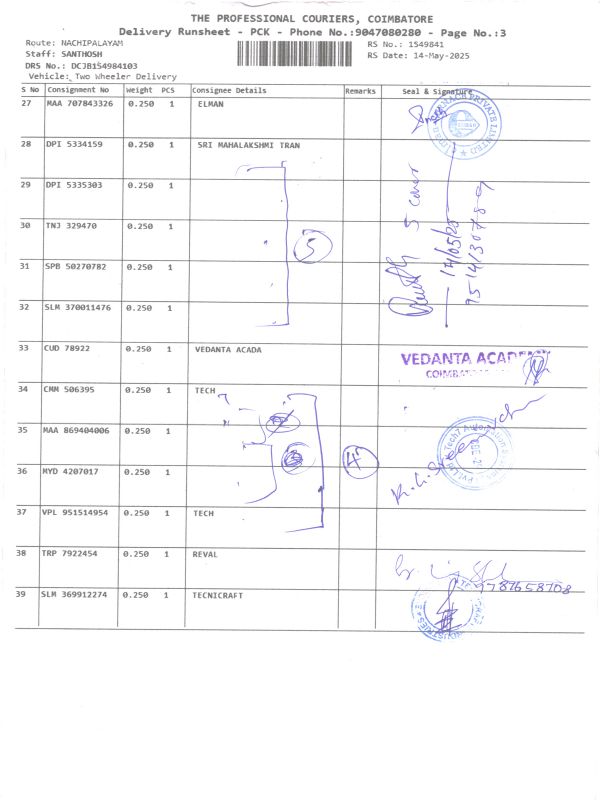 THE PROFESSIONAL COURIERS, COIMBATORE
Delivery Runsheet - PCK - Phone No.:9047080280 - Page No.:3
Route: NACHIPALAYAM
RS No.: 1549841
Staff: SANTHOSH
RS Date: 14-May-2025
DRS No.: DCJB154984103
Vehicle: Two Wheeler Delivery
S No Consignment No Weight PCS Consignee Details Remarks Seal & Signature
27 MAA 707843326 0.250 1 ELMAN
28 DPI 5334159 0.250 1 SRI MAHALAKSHMI TRAN
29 DPI 5335303 0.250 1
5 cover
14/05/25
9514130789
30 TNJ 329470 0.250 1
5
31 SPB 50270782 0.250 1
32 SLM 370011476 0.250 1
33 CUD 78922 0.250 1 VEDANTA ACADA
VEDANTA
34 CMM 506395 0.250 1 TECH
35 MAA 869404006 0.250 1
3
4
36 MYD 4207017 0.250 1
37 VPL 951514954 0.250 1 TECH
38 TRP 7922454 0.250 1 REVAL
9787658708
39 SLM 369912274 0.250 1 TECNICRAFT